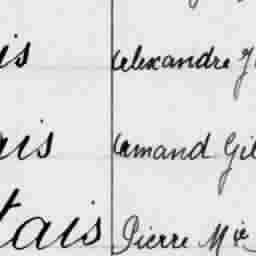 is Alexandre J
ais Armand Gil
tais Pierre Mie